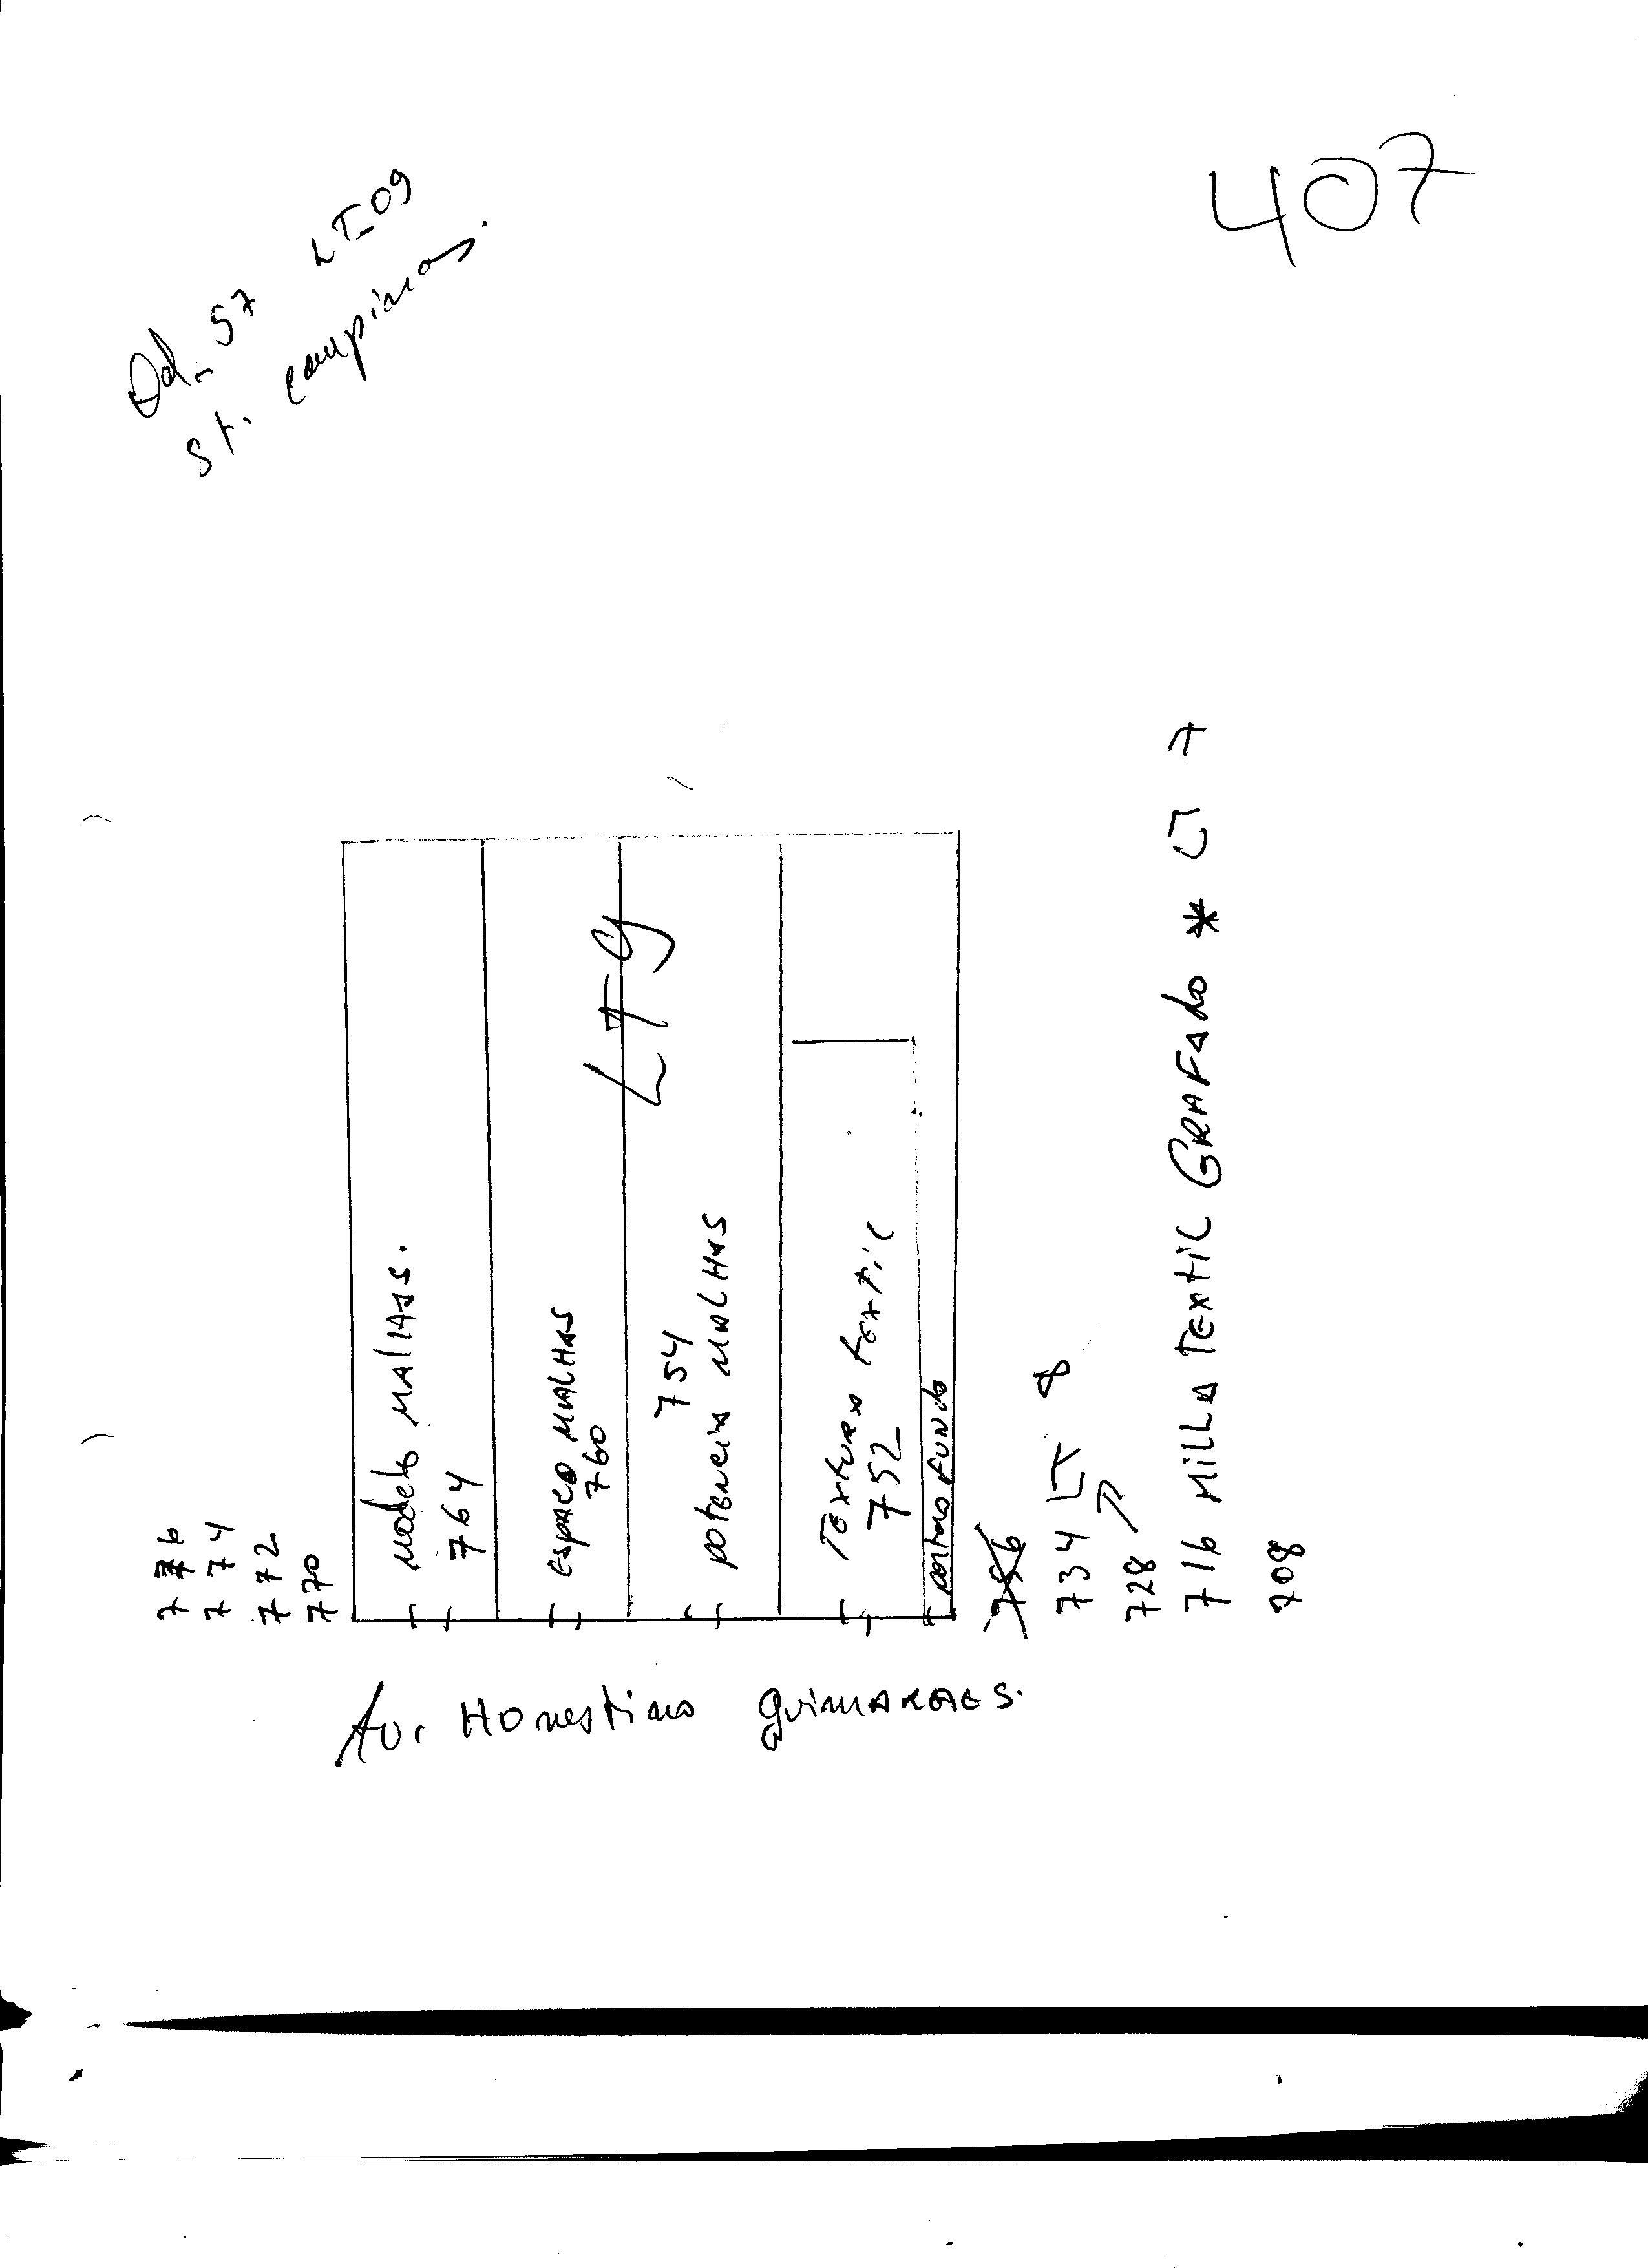 407
Qd. 57 LT-09
St. campinas.
776
774
772
770
modelo MALHAS.
764
espaco MALHAS
760
LT 9
754
potencia MALHAS
Textura textil
752
portao FUNdo
734 LT 8
728
716 MILLA TEXTIL GRAFAdo * LT 7
708
Av. HOnestino guimARAES.